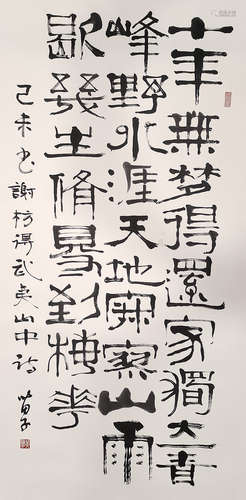 十年無梦得還家獨立青
峰野水涯天地寂寥山雨
歇幾生脩㝵到梅花
己未书謝枋得武夷山中詩